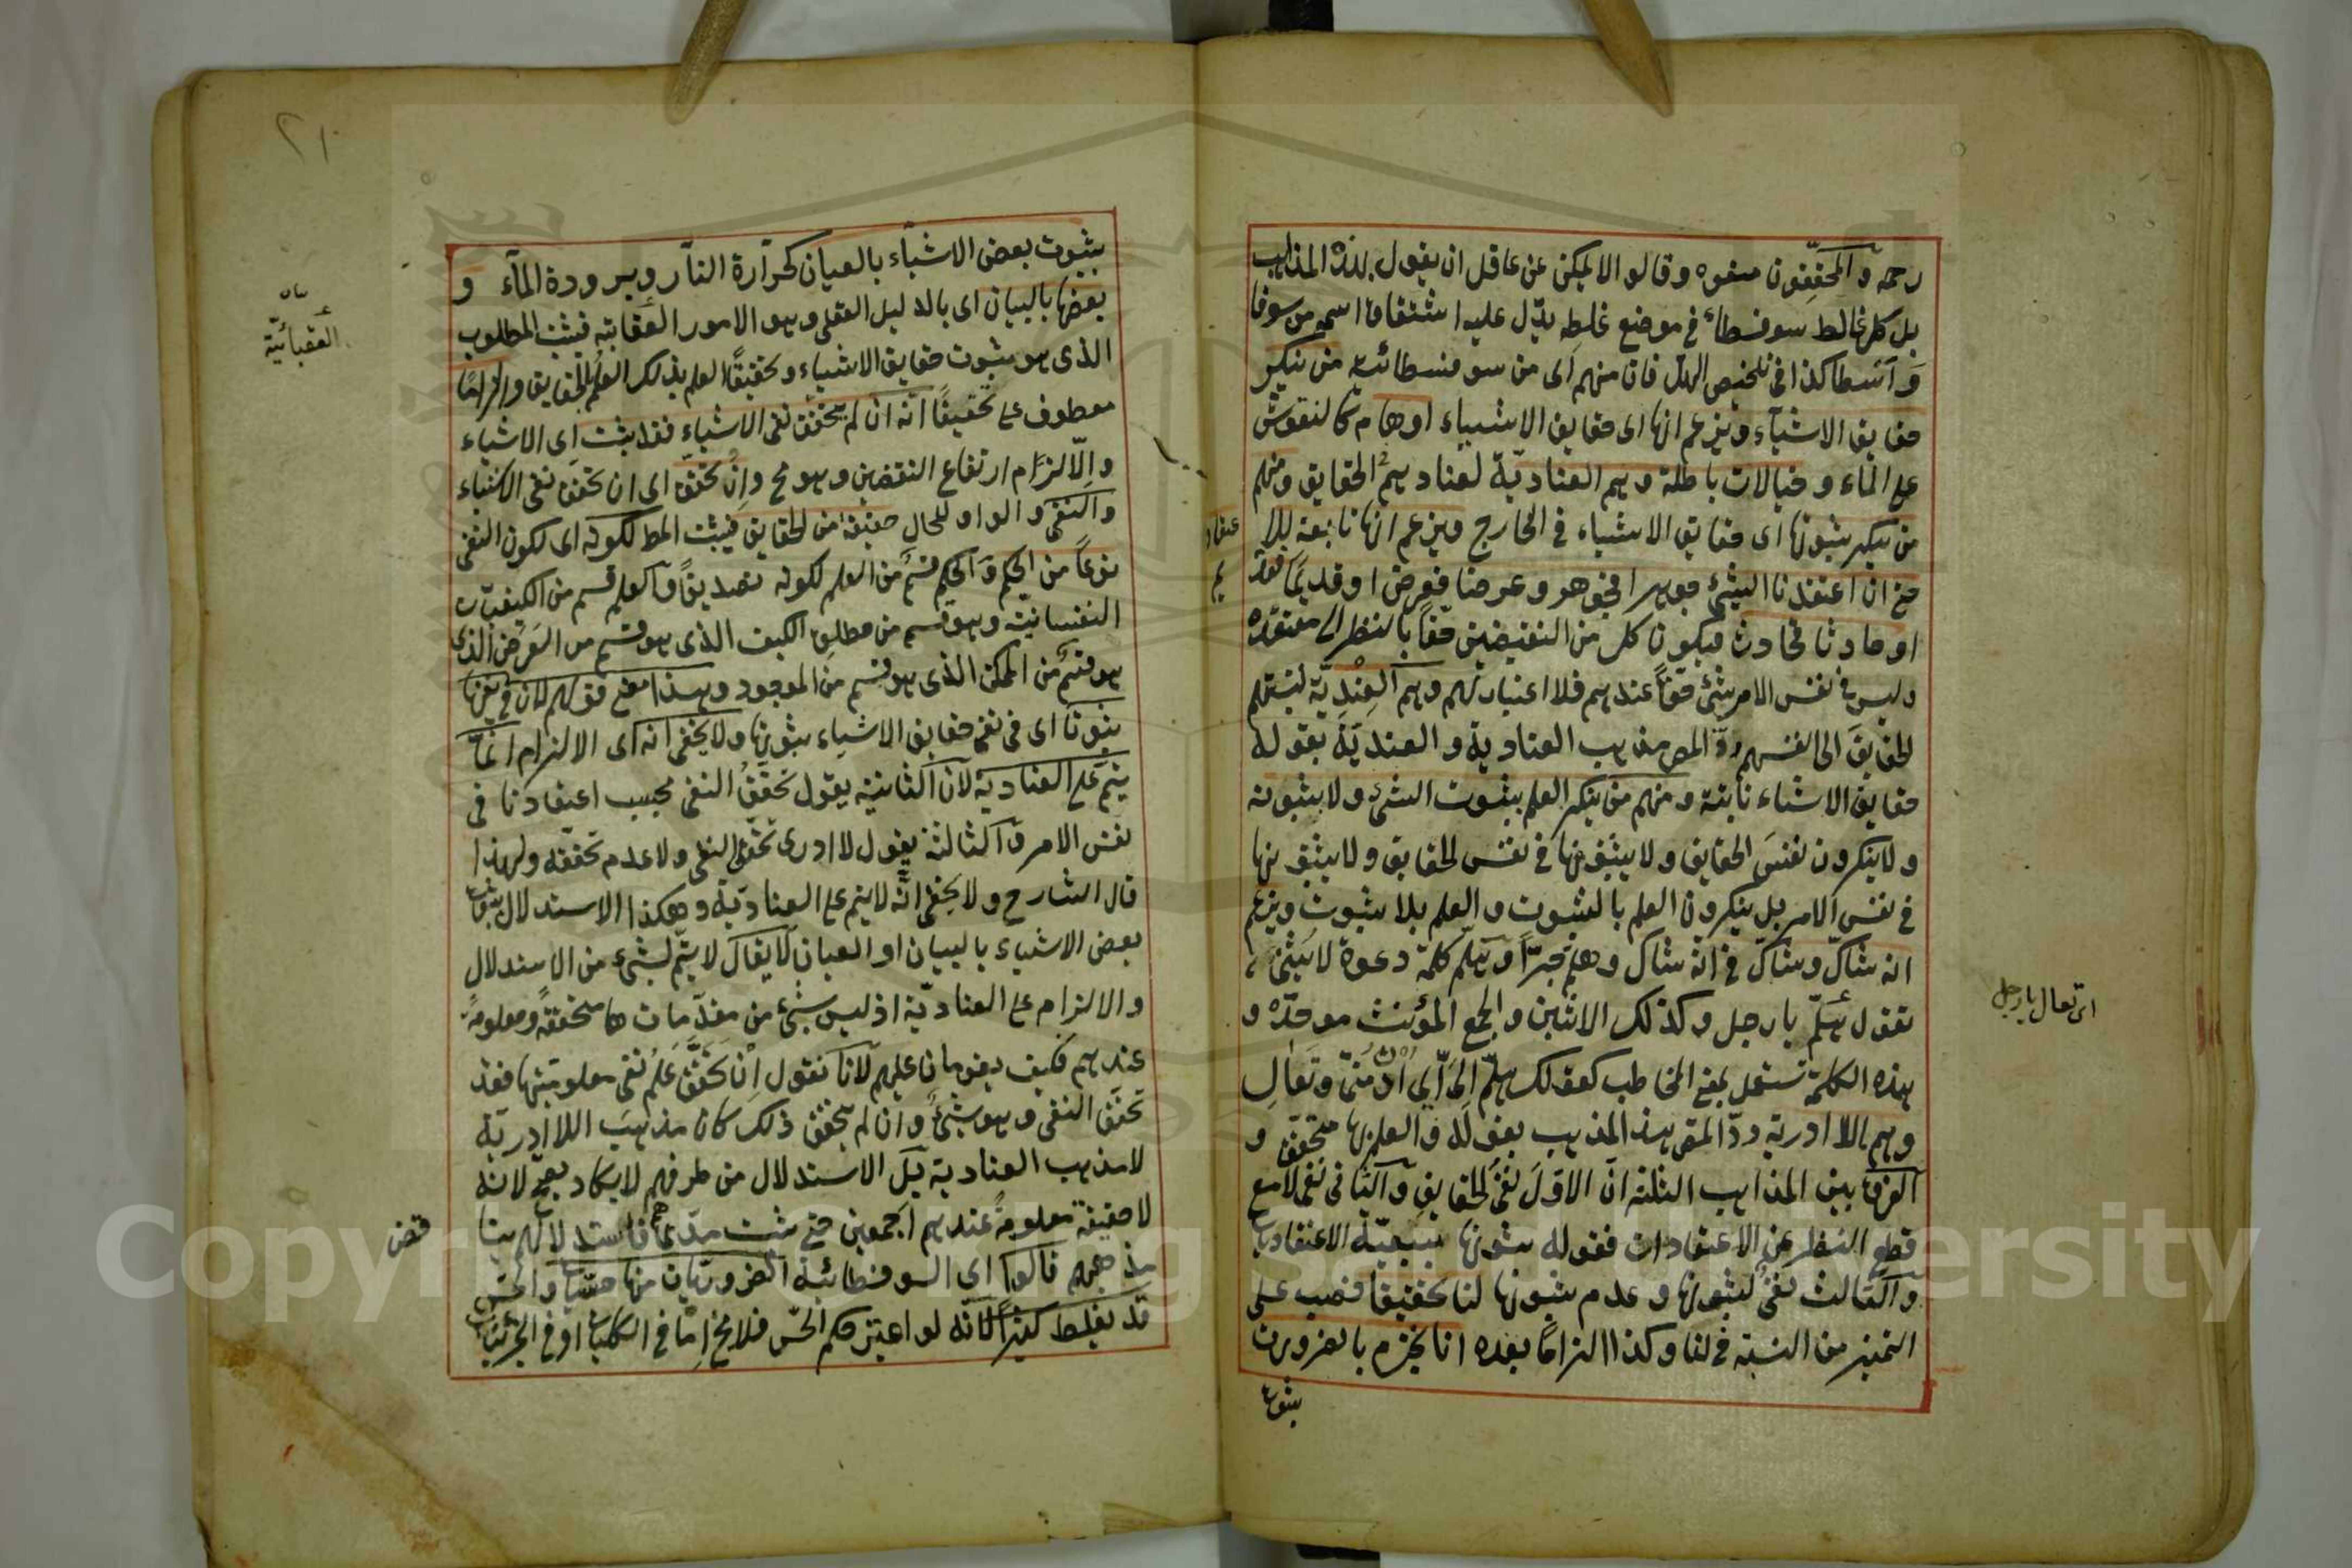 رحمه والمحققون منعوه وقالوا لا يمكن عن عاقل ان يقول بهذه المذاهب
بل كل غالط سوفسطائى فى موضع غلطه يدل عليه اشتقاق اسمهم من سوفا
واسطا كذا فى تلخيص فان منهم اى من سوفسطائية من ينكر
حقايق الاشياء ويزعم انها اى حقايق الاشياء اوهام كالنقوش
على الماء وخيالات باطلة وهم العنادية لعنادهم الحقايق ومنهم
من ينكر ثبوتها اى حقايق الاشياء فى الخارج ويزعم انها تابعة للا
عتقاد
حتى ان اعتقدنا الشئ جوهرا فجوهر وعرضا فعرض او قديما فقد
يم
او حادثا فحادث فيكون كل من النقيضين حقا بالنظر الى معتقده
وليس فى نفس الامر شئ حقا عندهم فلا اعتبار لهم وهم العندية لنسبتهم
الحقايق الى انفسهم رد المص مذهب العنادية والعندية بقوله
حقايق الاشياء ثابتة ومنهم من ينكر العلم بثبوت الشئ ولا بثبوته
ولا ينكرون نفس الحقايق ولا يثبتونها فى نفس الحقايق ولا يثبتونها
فى نفس الامر بل ينكرون العلم بالثبوت والعلم بلا ثبوت ويزعم
انه شاك وشاك فى انه شاك وهلم جرا وهلم كلمة دعوة لا يثنى
تقول هلم يا رجل وكذلك الاثنين والجمع المؤنث موحدة و
اى تعال يا رجل
هذه الكلمة تستعمل بمعنى المخاطب كقولك هلم الى اى ادن منى وتعال
وهم اللا ادرية رد المص هذا المذهب بقوله والعلم بها متحقق و
الفرق بين المذاهب الثلثة ان الاول نفى الحقايق والثانى نفى لا مع
قطع النظر عن الاعتقادات فقوله بثبوتها بتبعية الاعتقادات
والثالث نفى لثبوتها وعدم ثبوتها لنا تحقيقا نصب على
التميز من النسبة فى لنا وكذا الزاما بعده انا نجزم بالضرورة
بثبوت
٢١
بثبوت بعض الاشياء بالعيان كحرارة النار وبرودة الماء و
بعضها بالبيان اى بالدليل العقلى وهو الامور فيثبت المطلوب
الذى هو ثبوت حقايق الاشياء وتحقيقا العلم بذلك العلم بالحقايق والزاما
معطوف على تحقيقا انه ان لم يتحقق نفى الاشياء فقد يثبت اى الاشياء
والا لزم ارتفاع النقيضين وهو مح وان تحقق اى ان تحقق نفى الاشياء
والنفى والواو للحال حقيقة من الحقايق فيثبت المط لكونه اى لكون النفى
نوعا من الحكم والحكم قسم من العلم لكونه تصديقا والعلم قسم من الكيفيات
النفسانية وهو قسم من مطلق الكيف الذى هو قسم من العرض الذى
هو قسم من الممكن الذى هو قسم من الموجود وهذا معنى قولهم لان فى نفيها
ثبوتا اى فى نفى حقايق الاشياء ثبوتها ولا يخفى انه اى الالزام انما
يتم على العنادية لان الثانية يقول تحقق النفى بحسب اعتقادنا فى
نفس الامر والثالثة يقول لا ادرى تحقق النفى ولا عدم تحققه ولهذا
قال الشارح ولا يخفى انه لا يتم على العنادية وهكذا الاستدلال بثبوت
بعض الاشياء بالبيان او العيان لا يقال لا يتم لشئ من الاستدلال
والالزام على العنادية اذ ليس شئ من مقدماتها متحققة ومعلومة
عندهم فكيف يقومان عليهم لانا نقول ان تحقق علم نفى معلوميتها فقد
تحقق النفى وهو شئ وان لم يتحقق ذلك كان مذهب اللا ادرية
لا مذهب العنادية بل الاستدلال من طرفهم لا يكاد يصح لانه
لا حقيقة معلومة عندهم اجمعين حتى يثبت مدعاهم فاستدلالهم
مذهبهم قالوا اى السوفسطائية الضروريات منها حسيات والحس
قد يغلط كثيرا لانه لو اعتبر حكم الحس فلا مح اما فى الكليات او فى الجزئيات